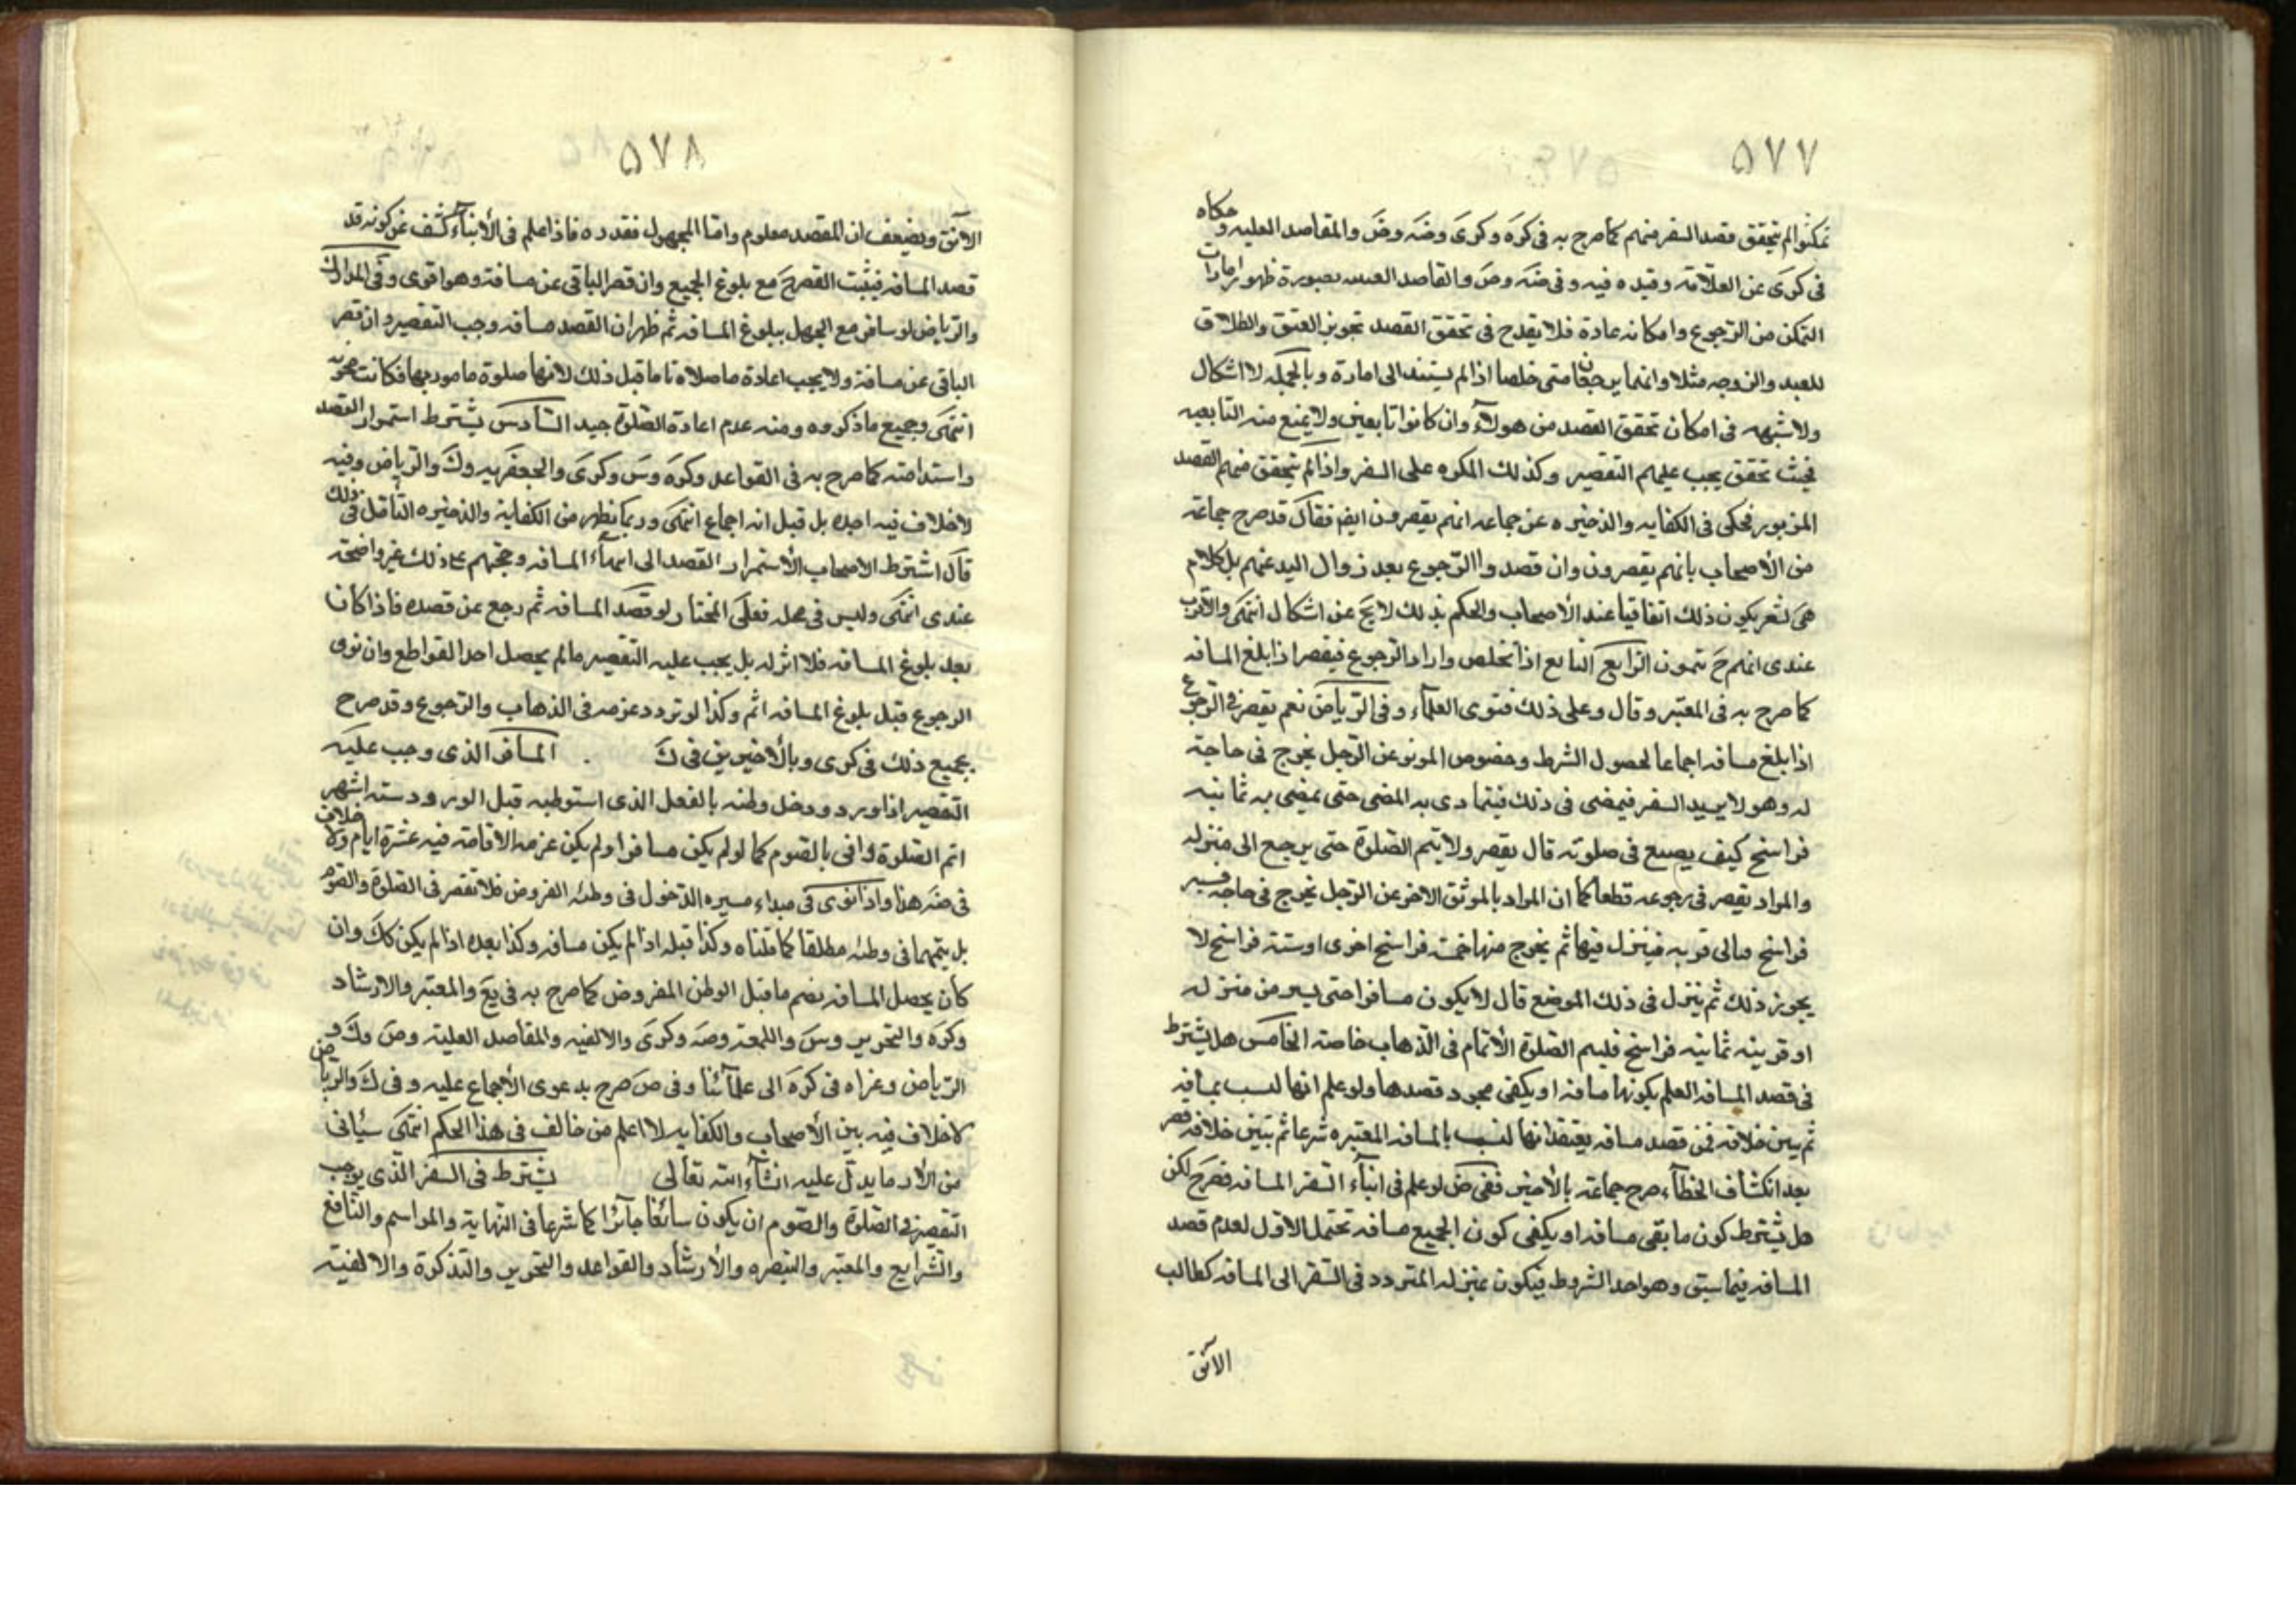 ٥٧٧
تمكنوا لم يتحقق قصد السفر منهم كما صرح به فى كره وكرى وضه وض والمقاصد العليه وحكاه
فى كرى عن العلامة وقيده فيه وفى ضه وض والمقاصد العليه بصورة ظهور امارات
التمكن من الرجوع وامكانه عادة فلا يقدح فى تحقق القصد تجويز العتق والطلاق
للعبد والزوجه مثلا وانهما يرجعان متى خلصا اذا لم يستند الى امارة وبالجمله لا اشكال
ولا شبهه فى امكان تحقق القصد من هولاء وان كانوا تابعين ولا يمنع منه التابعيه
فحيث تحقق يجب عليهم التقصير وكذلك المكره على السفر واذا لم يتحقق منهم القصد
المزبور فحكى فى الكفايه والذخيره عن جماعه انهم يقصرون ايضا فقال قد صرح جماعة
من الأصحاب بانهم يقصرون وان قصدوا الرجوع بعد زوال اليد عنهم بل كلام
هى لشعر بكون ذلك اتفاقيا عند الأصحاب والحكم بذلك لا يخ عن اشكال انتهى والاقرب
عندى انهم ح يتمون الرابع التابع اذا تخلص واراد الرجوع فيقصر اذا بلغ المسافه
كما صرح به فى المعتبر وقال وعلى ذلك فتوى العلماء وفى الرياض نعم يقصر فى الرجوع
اذا بلغ مسافه اجماعا لحصول الشرط وخصوص الموثق عن الرجل يخرج فى حاجة
له وهو لا يريد السفر فيمضى فى ذلك فيتمادى به المضى حتى يمضى به ثمانية
فراسخ كيف يصنع فى صلوته قال يقصر ولا يتم الصلوة حتى يرجع الى منزله
والمراد يقصر فى رجوعه قطعا كما ان المراد بالموثق الاخر عن الرجل يخرج فى حاجة فيسير
فراسخ فياتى قريه فينزل فيها ثم يخرج منها خمسة فراسخ اخرى او ستة فراسخ لا
يجوز ذلك ثم ينزل فى ذلك الموضع قال لا يكون مسافرا حتى يسير من منزله
او قريته ثمانية فراسخ فليتم الصلوة الأتمام فى الذهاب خاصة الخامس هل يشترط
فى قصد المسافه العلم بكونها مسافه او يكفى مجرد قصدها ولو علم انها ليست بمسافه
ثم يبين خلافه فمن قصد مسافه يعتقد انها ليست بالمسافه المعتبره شرعا ثم تبين خلافه قصر
بعد انكشاف الخطاء صرح جماعة بالأخير ففى ض لو علم فى اثناء السفر المسافه قصر ح لكن
هل يشترط كون ما بقى مسافه او يكفى كون الجميع مسافه تحتمل الاول لعدم قصد
المسافه فيما سبق وهو احد الشروط فيكون بمنزله المتردد فى السفر الى المسافه كطالب
الآبق
٥٧٨
الآبق ويضعف ان المقصد معلوم وانما المجهول فقدره فاذا علم فى الأثناء كشف عن كونه قد
قصد المسافه فيثبت القصر ح مع بلوغ الجميع وان قصر الباقى عن مسافة وهو اقوى وفى المدارك
والرياض لو سافر مع الجهل ببلوغ المسافه ثم ظهر ان القصد مسافه وجب التقصير وان قصر
الباقى عن مسافة ولا يجب اعادة ما صلاه تاما قبل ذلك لانها صلوة مامور بها فكانت مجزيه
انتهى وجميع ما ذكروه ومنه عدم اعادة الصلوة جيد السادس يشترط استمرار القصد
واستدامته كما صرح به فى القواعد وكره وس وكرى والجعفريه وك والرياض وفيه
لا خلاف فيه اجده بل قيل انه اجماع انتهى وربما يظهر من الكفاية والذخيره التامل فى ذلك
قال اشترط الاصحاب الأستمرار القصد الى انتهاء المسافه وحجتهم على ذلك غير واضحة
عندى انتهى وليس فى محله فعلى المختار لو قصد المسافه ثم رجع عن قصده فاذا كان
بعد بلوغ المسافه فلا اثر له بل يجب عليه التقصير ما لم يحصل احد القواطع وان نوى
الرجوع قبل بلوغ المسافه اتم وكذا لو تردد عزمه فى الذهاب والرجوع وقد صرح
بجميع ذلك فى كرى وبالأخيرين فى ك المسافر الذى وجب عليه
التقصير اذا ورد ودخل وطنه بالفعل الذى استوطنه قبل الورود ستة اشهر
اتم الصلوة واتى بالصوم كما لو لم يكن مسافرا ولم يكن عزمه الاقامة فيه عشرة ايام ولا خلاف
فى ضه هذا واذا نوى فى مبداء مسيره الدخول فى وطنه المفروض فلا تقصر فى الصلوة والصوم
بل يتمهما فى وطنه مطلقا كما قلناه وكذا قبله اذا لم يكن مسافه وكذا بعده اذا لم يكن كك وان
كان يحصل المسافه بضم ما قبل الوطن المفروض كما صرح به فى يع والمعتبر والارشاد
وكره والتحرير وس واللمعة وضه وكرى والالفيه والمقاصد العلية وض وك و
الرياض وعزاه فى كره الى علمائنا وفى ض صرح بدعوى الأجماع عليه وفى ك والرياض
لا خلاف فيه بين الأصحاب والكفايه لا اعلم من خالف فى هذا الحكم انتهى سياتى
من الأد ما يدل عليه انشاء الله تعالى يشترط فى السفر الذى يوجب
التقصير فى الصلوة والصوم ان يكون سائغا جائزا كما شرعا فى النهاية والمراسم والنافع
والشرايع والمعتبر والتبصره والأرشاد والقواعد والتحرير والتذكرة والالفية